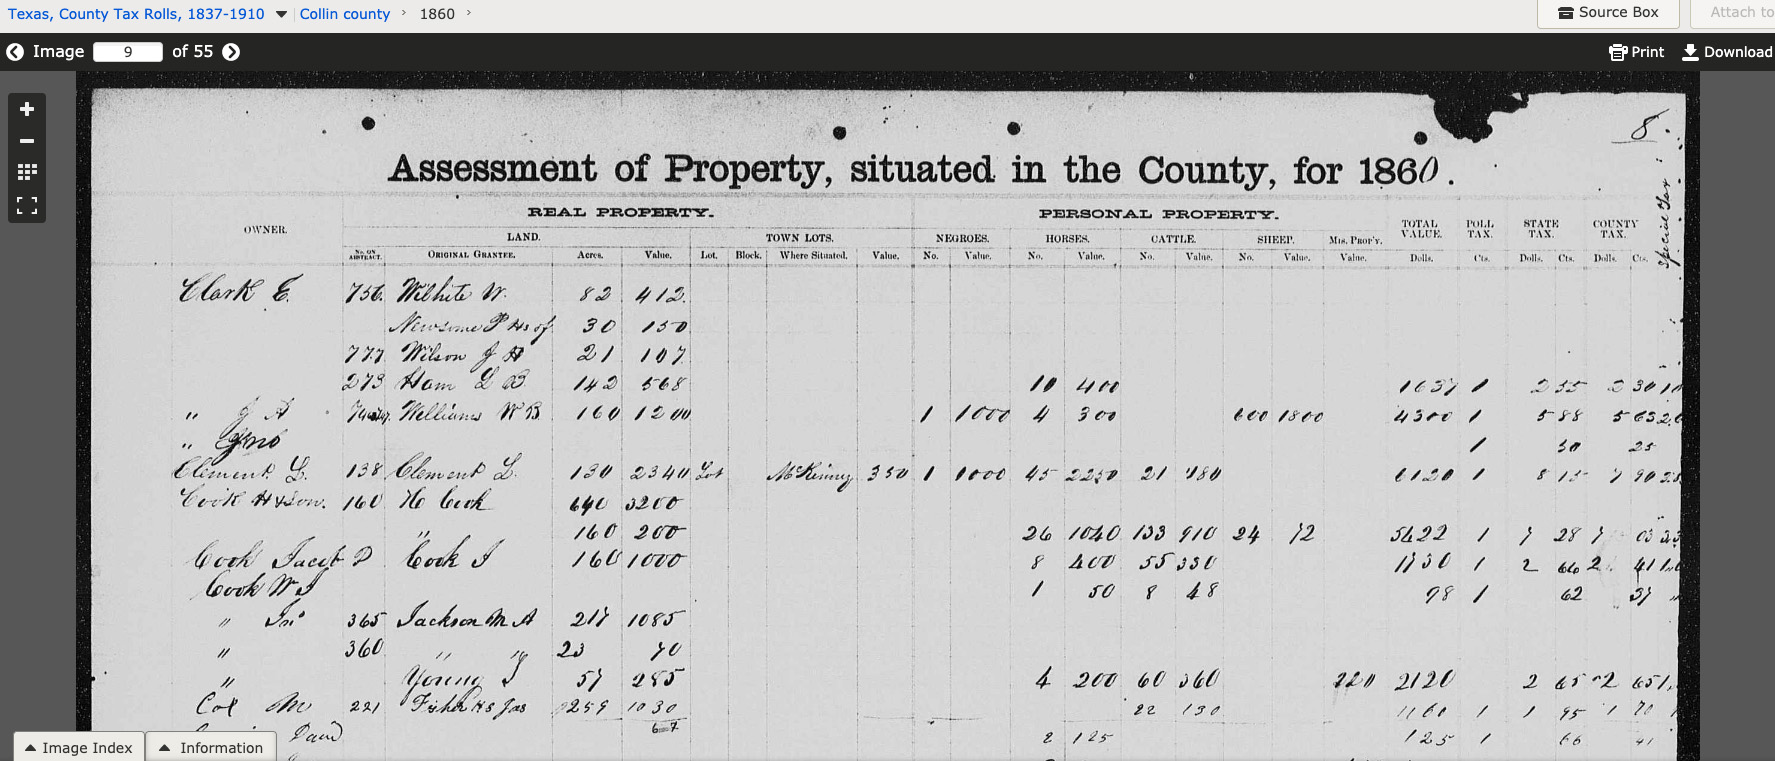 Texas, County Tax Rolls, 1837-1910 Collin county › 1860 ›
Source Box Attach to
Image 9 of 55 Print Download
8.
Assessment of Property, situated in the County, for 1860.
Special Tax
REAL PROPERTY. PERSONAL PROPERTY.
OWNER. LAND. TOWN LOTS. NEGROES. HORSES. CATTLE. SHEEP. Mis. Prop'y. TOTAL VALUE. POLL TAX. STATE TAX. COUNTY TAX.
No. on Abstract. Original Grantee. Acres. Value. Lot. Block. Where Situated. Value. No. Value. No. Value. No. Value. No. Value. Value. Dolls. Cts. Dolls. Cts. Dolls. Cts.
Clark E. 756 Wilhite W. 82 412
Newsome P Hs of 30 150
777 Wilson J H 21 107
273 Ham L B 142 568 10 400 1637 1 2 55 2 30
" J A Williams W B 160 1200 1 1000 4 300 600 1800 4300 1 5 88 5 63
" Jno 1 30 25
Clement L. 138 Clement L. 130 2340 Lot McKinney 350 1 1000 45 2250 21 180 6120 1 8 15 7 90
Cook H & Son. 160 H Cook 640 3200
" 160 200 26 1040 133 910 24 72 5422 1 7 28 7 03
Cook Jacob P Cook J 160 1000 8 400 55 330 1730 1 2 66 2 41
Cook W J 1 50 8 48 98 1 62 37 "
" Jr 365 Jackson M A 217 1085
" 360 " " 23 70
" Young J 57 285 4 200 60 360 220 2120 2 65 2 65
Cox M 221 Fisher Hs Jas 259 1030 22 130 1160 1 1 95 1 70
67
David 2 125 125 1 66 41
Image Index Information